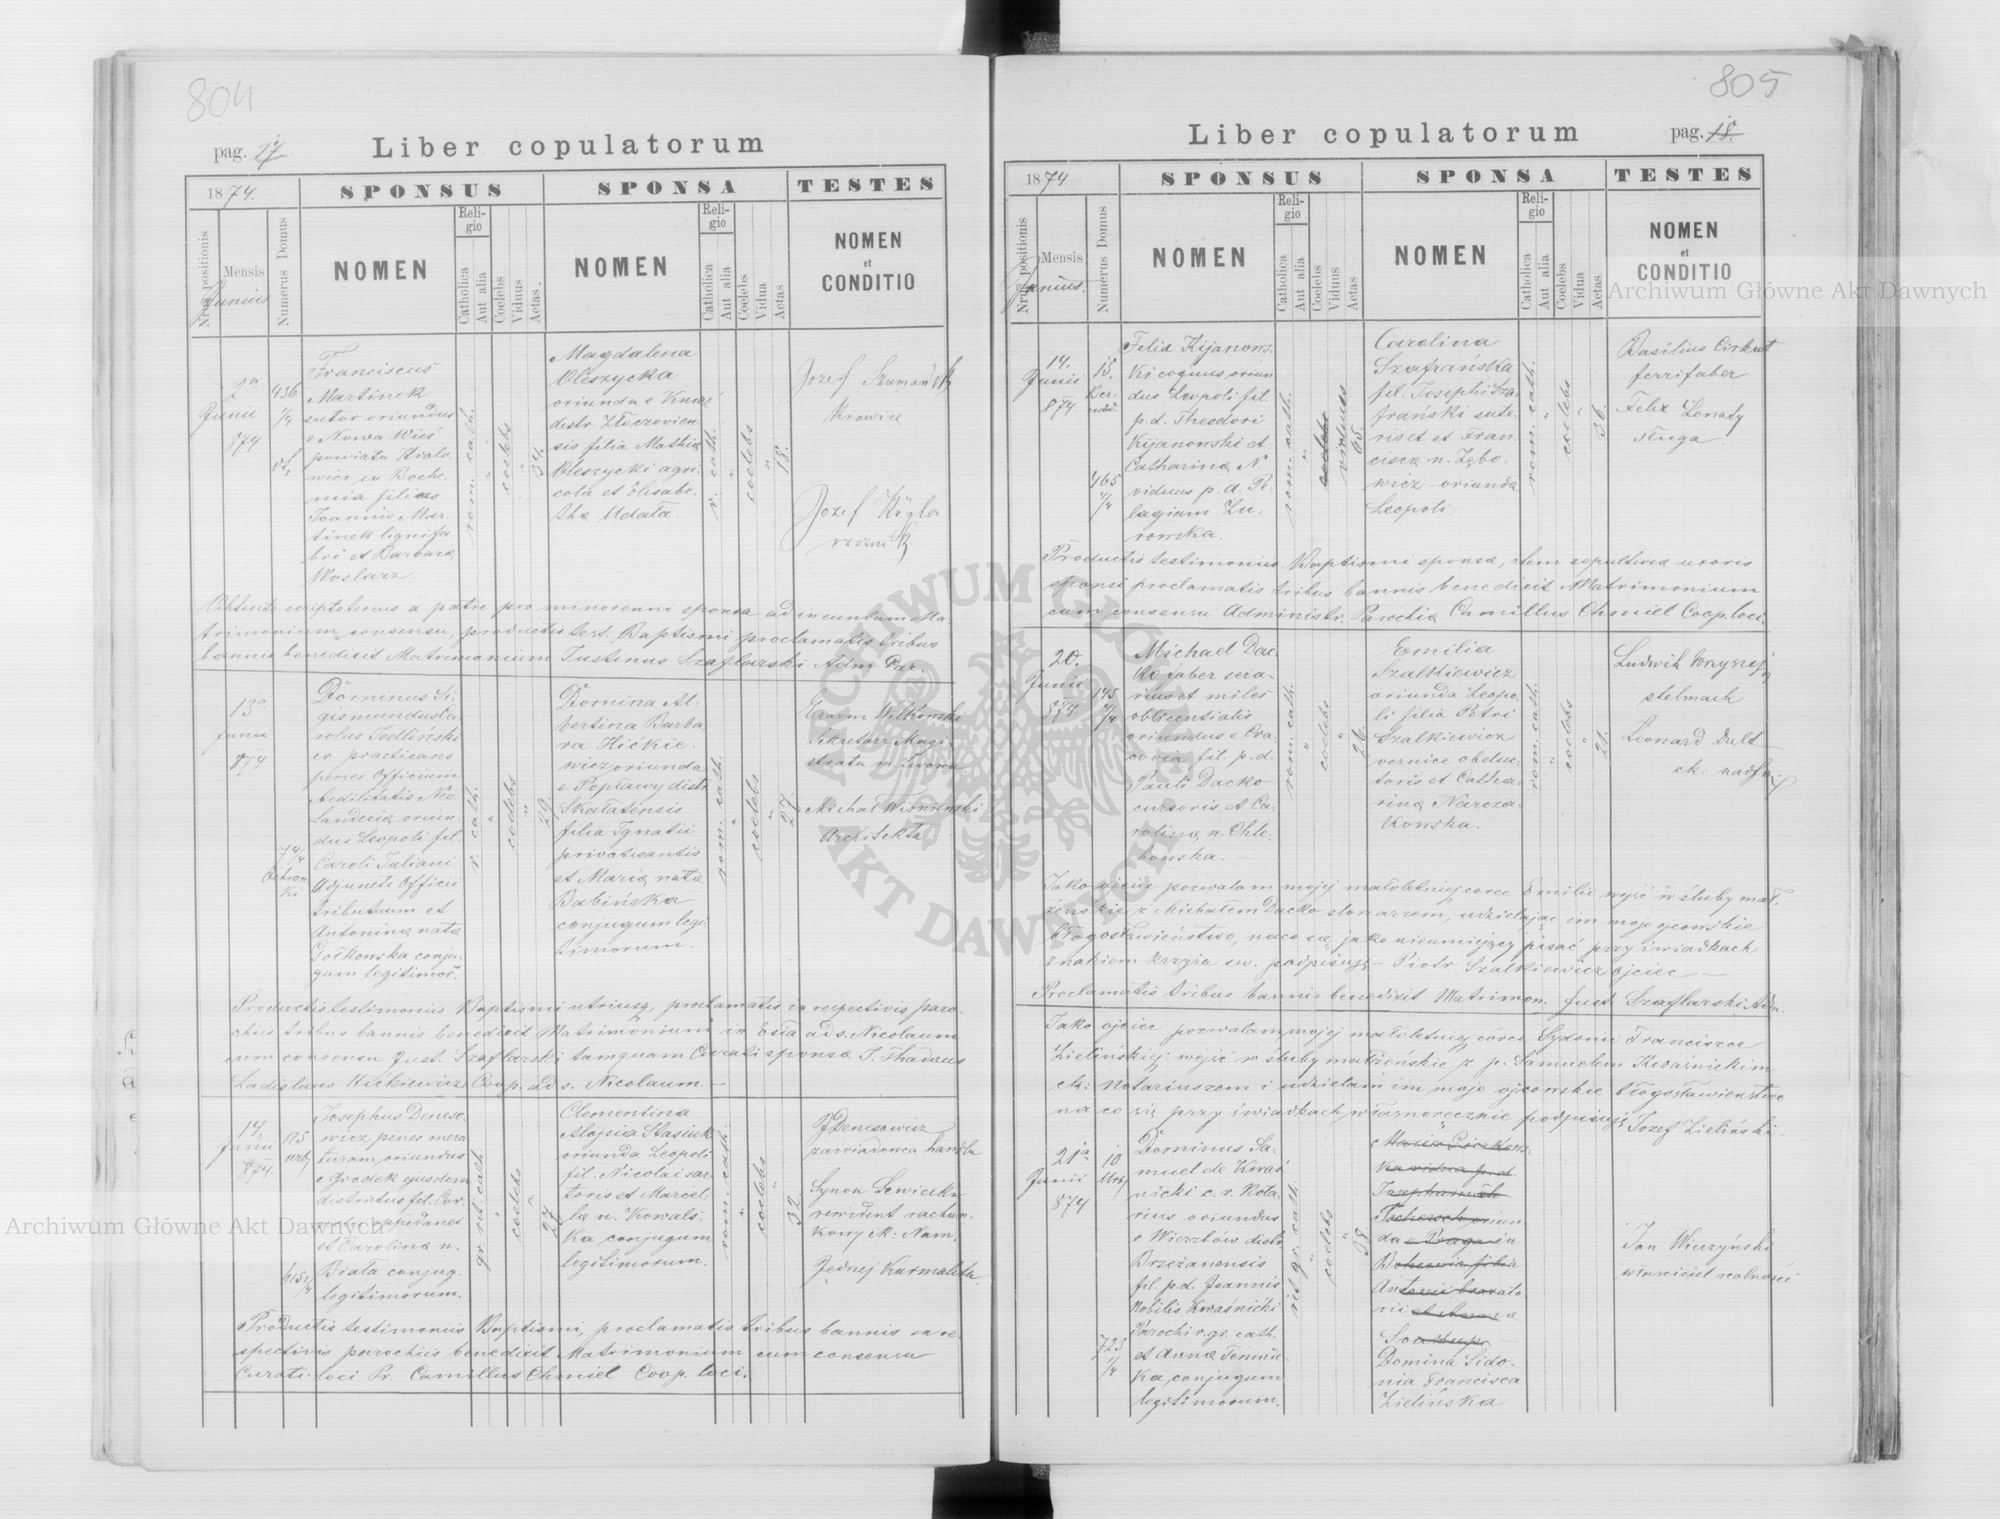 804
pag. 17
Liber copulatorum
1874.
SPONSUS
SPONSA
TESTES
Nrus positionis
Mensis
Junius
Numerus Domus
NOMEN
Religio
Catholica
Aut alia
Coelebs
Viduus
Aetas.
NOMEN
Religio
Catholica
Aut alia
Coelebs
Vidua
Aetas
NOMEN
et
CONDITIO
2a
Junii
874.
436
1/4
Franciscus
Martinek
sutor oriundus
e Nowa Wieś
powiatu
in Bohe-
mia filius
Joannis Mar-
tinek lignifa-
bri et Barbara
Woslarz.
rom. cath.
coelebs
34.
Magdalena
Oleszycka
oriunda e
distr. Złoczovien-
sis filia Mathia
Oleszycki agri-
cola et Elisabe-
tha Udała.
r. cath.
coelebs
18.
Jozef Szumański
Krawiec
Jozef
rzeznik
a patre pro minorenni sponsa ad ineundum Ma-
trimonium consensu, productis test. Baptismi proclamatis tribus
bannis benedixit Matrimonium Justinus Szaflarski Adm. Par.
13a
Junii
874
Dominus Si-
gismundus Ca-
rolus Sedliński
practicans
penes Officium
Aedilitatis Neo
Sandeciae oriun-
dus Leopoli fil.
Caroli Juliani
Adjuncti Officii
tributuum et
Antonina nata
conju-
gum legitimor.
r. cath.
coelebs
29
Domina Al-
bertina Barba-
ra Hićkie-
wicz oriunda
e Popławy distr.
Skałatensis
filia Ignatii
privatisantis
et Maria nata
Babińska
conjugum legi-
timorum.
rom. cath.
coelebs
27.
Erazm Wilkoński
Sekretarz Magi-
stratu m. Lwowa
Michał
Architekta
Productis testimoniis Baptismi utriusq, proclamatis in respectivis paro-
chiis tribus bannis benedixit Matrimonium in Ecsia ad s. Nicolaum
cum consensu Just. Szaflarski tamquam Curati sponsa
Ladislaus Hićkiewicz Coop. ad s. Nicolaum.
14.
Junii
874.
125
615
Josephus Denese-
wicz penes mera-
turam, oriundus
e Grodek ejusdem
districtus fil.
lapidanei
et Carolina n.
Biała conjug.
legitimorum.
gr. rit. cath.
coelebs
27
Clementina
Alojsia Stasiuk
oriunda Leopoli
fil. Nicolai sar-
toris et Marcel-
la n. Kowals-
ka conjugum
legitimorum.
rom. cath.
coelebs
32.
J Denesewicz
zawiadowca handlu
Lewicki
rewident rachun-
kowy ck: Nam.
Jędrzej
Productis testimoniis Baptismi, proclamatis tribus bannis in re-
spectivis parochiis benedixit Matrimonium cum consensu
Curati loci Pr. Camillus Chmiel Coop. loci.
805
Liber copulatorum
pag. 18.
1874
SPONSUS
SPONSA
TESTES
Nrus positionis
Mensis
Junius.
Numerus Domus
NOMEN
Religio
Catholica
Aut alia
Coelebs
Viduus
Aetas
NOMEN
Religio
Catholica
Aut alia
Coelebs
Vidua
Aetas
NOMEN
et
CONDITIO
14.
Junii
874
15.
465
1/4
Felix Kijanows-
ki coquus oriun-
dus Leopoli fil.
p.d. Theodori
Kijanowski et
Catharina N
viduus p. d. Pe-
lagiam Zu-
rowska.
rom. cath.
coelebs
viduus
65.
Carolina
Szafrańska
fil. Josephi Sza-
frański suto-
ris et Fran-
cisca n. Zębo-
wicz oriunda
Leopoli.
rom. cath.
coelebs
36.
Basilius Cirkut
ferrifaber
Felix Lonaty
sługa.
Productis testimoniis Baptismi sponsa, item sepultura uxoris
sponsi proclamatis tribus bannis benedixit Matrimonium
cum consensu Administr. Parochia Camillus Chmiel Coop. loci.
20.
Junii
874
145
4/4
Michael Dac-
ko faber sera-
rius et miles
oriundus e Cra-
covia fil. p.d.
Pauli Dacko
cursoris et Ca-
rolina n. Chle-
bowska.
rom. cath.
coelebs
26.
Emilia
Szalkiewicz
oriunda Leopo-
li filia Petri
Szalkiewicz
vernice obduc-
toris et Catha-
rina Narcza-
kowska.
rom. cath.
coelebs
21.
Ludwik
stelmach
Leonard
Jako ojciec pozwalam mojej małoletniej corce Emilii wejść w śluby mał-
żeńskie z Michałem Dacko slosarzem, udzielając im moje ojcowskie
błogosławieństwo, na co się jako nieumiejący pisać przy świadkach
znakiem krzyża sw. podpisuję – Piotr Szalkiewicz ojciec –
Proclamatis tribus bannis benedixit Matrimon. Just. Szaflarski Adm.
Jako ojciec pozwalam mojej małoletniej córce Sydonii Franciszce
Zielińskiej wejść w śluby małżeńskie z p. Samuelem Kwaśnickim
ck: Notariuszem i udzielam im moje ojcowskie błogosławienstwo
na co się przy świadkach własnoręcznie podpisuję Jozef Zieliński
21a
Junii
874
10
723
1/4
Dominus Sa-
muel de Kwaś-
nicki c. r. Nota-
rius oriundus
e Wierzbów distr.
Brzeżanensis
fil. p.d. Joannis
Nobilis Kwaśnicki
Parochi r. gr. cath.
et Anna
conjugum
legitimorum.
rit. gr. cath.
coelebs
38.
Domina Sido-
nia Francisca
Zielińska
Jan Wieczyński
właściciel realności
Archiwum Główne Akt Dawnych
Archiwum Główne Akt Dawnych
ARCHIWUM GŁÓWNE AKT DAWNYCH